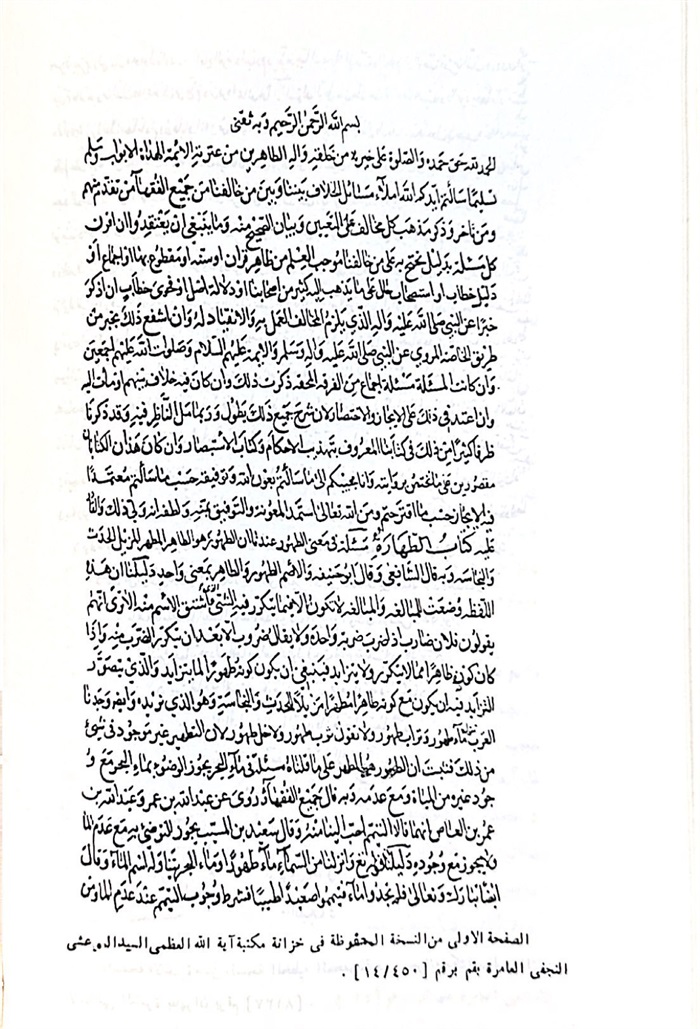 بسم الله الرحمن الرحيم وبه ثقتي
الحمد لله حق حمده والصلوة على خيرته من خلقه محمد واله الطاهرين من عترته الائمة الهداة الابواب وسلم
تسليما سالتم ايدكم الله املاء مسائل الخلاف بيننا وبين من خالفنا من جميع الفقها من تقدم منهم
ومن تاخر وذكر مذهب كل مخالف على التعيين وبيان الصحيح منه وما ينبغي ان يعتقد وان اقرن
كل مسئلة بدليل نحتج به على من خالفنا موجب للعلم من ظاهر قران او سنه او مقطوع بها او اجماع او
دليل خطاب او استصحاب حال على ما يذهب اليه كثير من اصحابنا او دلالة اصل او فحوى خطاب ان اذكر
خبرا عن النبي صلى الله عليه واله الذي يلزم المخالف العمل به والانقياد له وان اشفع ذلك بخبر من
طريق الخاصه المروي عن النبي صلى الله عليه واله وسلم والايمة عليهم السلام وصلوات الله عليهم اجمعين
وان كانت المسئلة مسئلة اجماع من الفرقه المحقه ذكرت ذلك وان كان فيه خلاف بينهم اومات اليه
وان اعتمد في ذلك على الايجاز والاختصار لان شرح جميع ذلك يطول وربما مل الناظر فيه وقد ذكرنا
طرفا كثيرا من ذلك في كتابنا المعروف بتهذيب الاحكام وكتاب الاستبصار وان كان هذان الكتابان
مقصورين على ما يختص بروايته وانا مجيبكم الى ما سالتم بعون الله وتوفيقه حسب ما سالتم معتمدا
فيه الايجاز حسب ما اقترحتم ومن الله تعالى استمد المعونه والتوفيق بمنه ولطفه انه ولي ذلك والقادر
عليه كتاب الطهارة مسئلة في معنى الطهور عندنا ان الطهور هو الطاهر المطهر المزيل للحدث
والنجاسة وبه قال الشافعي وقال ابو حنيفه والاصم الطهور والطاهر بمعنى واحد دليلنا ان هذه
اللفظه وضعت للمبالغه والمبالغه لا تكون الا فيما يتكرر فيه الشئ الذي اشتق الاسم منه الا ترى انهم
يقولون فلان ضارب اذا ضرب ضربة واحدة ولا يقال ضروب الا بعد ان يتكرر الضرب منه واذا
كان كون طاهرا مما لا يتكرر ولا يتزايد فينبغي ان يكون كونه طهورا لما يتزايد والذي يتصور
التزايد فيه ان يكون مع كونه طاهرا مطهرا مزيلا للحدث والنجاسة وهو الذي نريده وايضا وجدنا
العرب تقول ماء طهور وتراب طهور ولا تقول ثوب طهور ولا خل طهور لان التطهير غير موجود في شئ
من ذلك فثبت ان الطهور هو المطهر على ما قلناه مسئلة في ماء البحر يجوز الوضوء بماء البحر مع و
جود غيره من المياه ومع عدمه وبه قال جميع الفقهاء وروى عن عبد الله بن عمر وعبد الله بن
عمرو بن العاص انهما قالا التيمم احب الينا منه وقال سعيد بن المسيب يجوز التوضئ به مع عدم الماء
ولا يجوز مع وجوده دليلنا قوله تع وانزلنا من السماء ماء طهورا وماء البحر يتناوله اسم الماء وقال
ايضا تبارك وتعالى فلم تجدوا ماء فتيمموا صعيدا طيبا فشرط وجوب التيمم عند عدم الماء ومن
الصفحة الاولى من النسخة المحفوظة في خزانة مكتبة آية الله العظمى السيد المرعشي
النجفي العامرة بقم برقم [١٤/٤٥٠] .